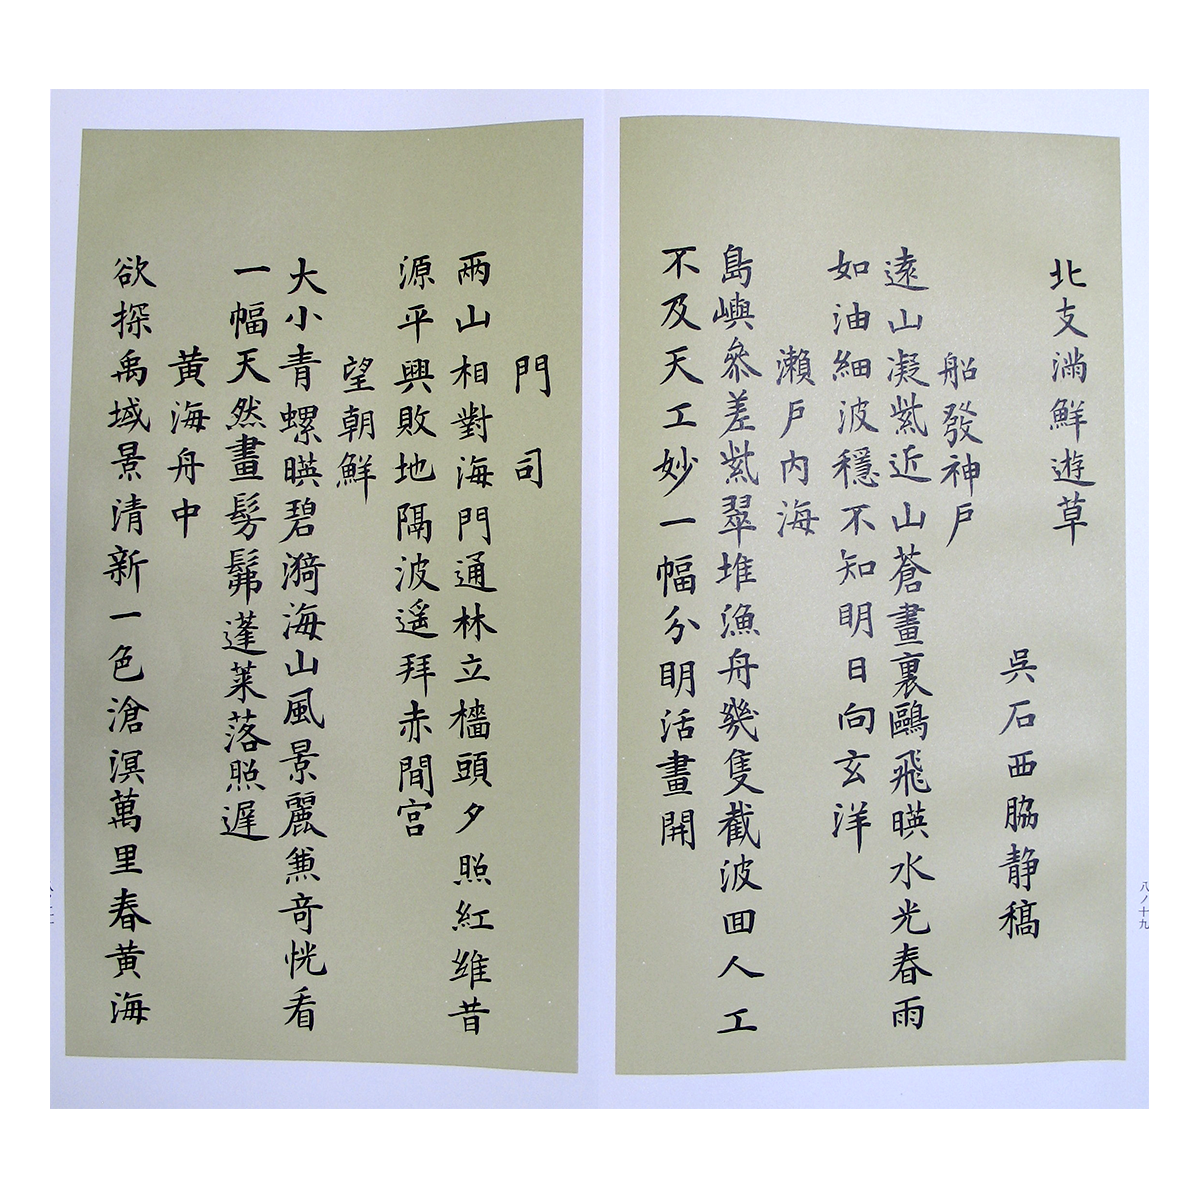 北支満鮮遊草
呉石西脇静稿
船發神戸
遠山凝紫近山蒼畫裏鷗飛暎水光春雨
如油細波穩不知明日向玄洋
瀬戸内海
島嶼參差紫翠堆漁舟幾隻截波回人工
不及天工妙一幅分明活畫開
八ノ十九
門司
兩山相對海門通林立檣頭夕照紅維昔
源平興敗地隔波遥拜赤間宮
望朝鮮
大小青螺暎碧漪海山風景麗兼奇恍看
一幅天然畫髣髴蓬莱落照遲
黄海舟中
欲探禹域景清新一色滄溟萬里春黄海